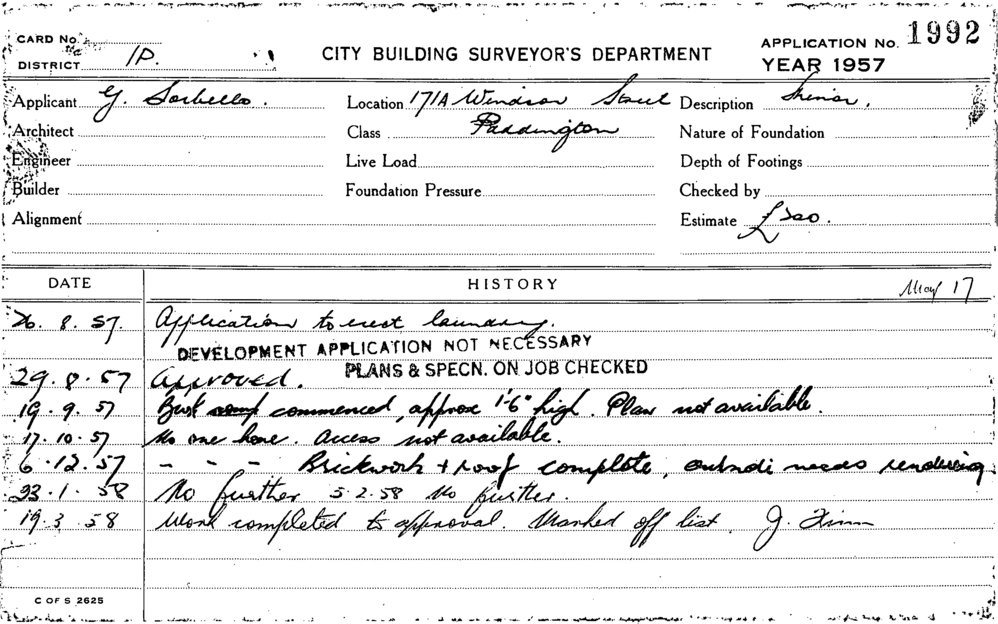 CARD No.
DISTRICT IP.
CITY BUILDING SURVEYOR'S DEPARTMENT
APPLICATION No. 1992
YEAR 1957
Applicant G. Sorbello.
Location 171A Windsor Street
Description
Architect
Class Paddington
Nature of Foundation
Engineer
Live Load
Depth of Footings
Builder
Foundation Pressure
Checked by
Alignment
Estimate £
DATE
HISTORY
May 17
26. 8. 57. Application to erect laundry.
DEVELOPMENT APPLICATION NOT NECESSARY
PLANS & SPECN. ON JOB CHECKED
29. 8. 57 Approved.
19. 9. 57 commenced, approx 1'-6" high. Plan not available.
17. 10. 57 No one home. Access not available.
6. 12. 57 - - - Brickwork + roof complete, outside needs rendering.
23. 1. 58 No further 5.2.58 No further.
19. 3. 58 Work completed to approval. Marked off list. J. Finn
C OF S 2625